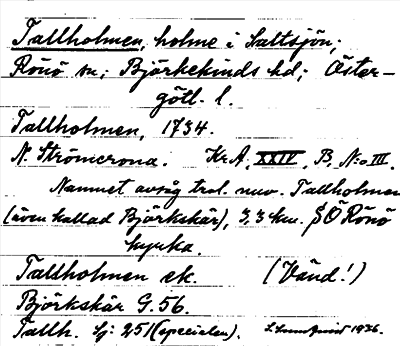 Tallholmen, holme i Saltsjön,
Rönö sn; Björkekinds hd; Öster-
götl. l.
Tallholmen, 1734.
N. Strömcrona. Kr.A. XXIV, B, N:o III.
Namnet avsåg trol. nuv. Tallholmen
(även kallad Björkskär), 3,3 km. SÖ Rönö
kyrka.
Tallholmen ek. (Vänd!)
Björkskär G. 56.
Tallh. Sj: 251 (specialen). 1936.